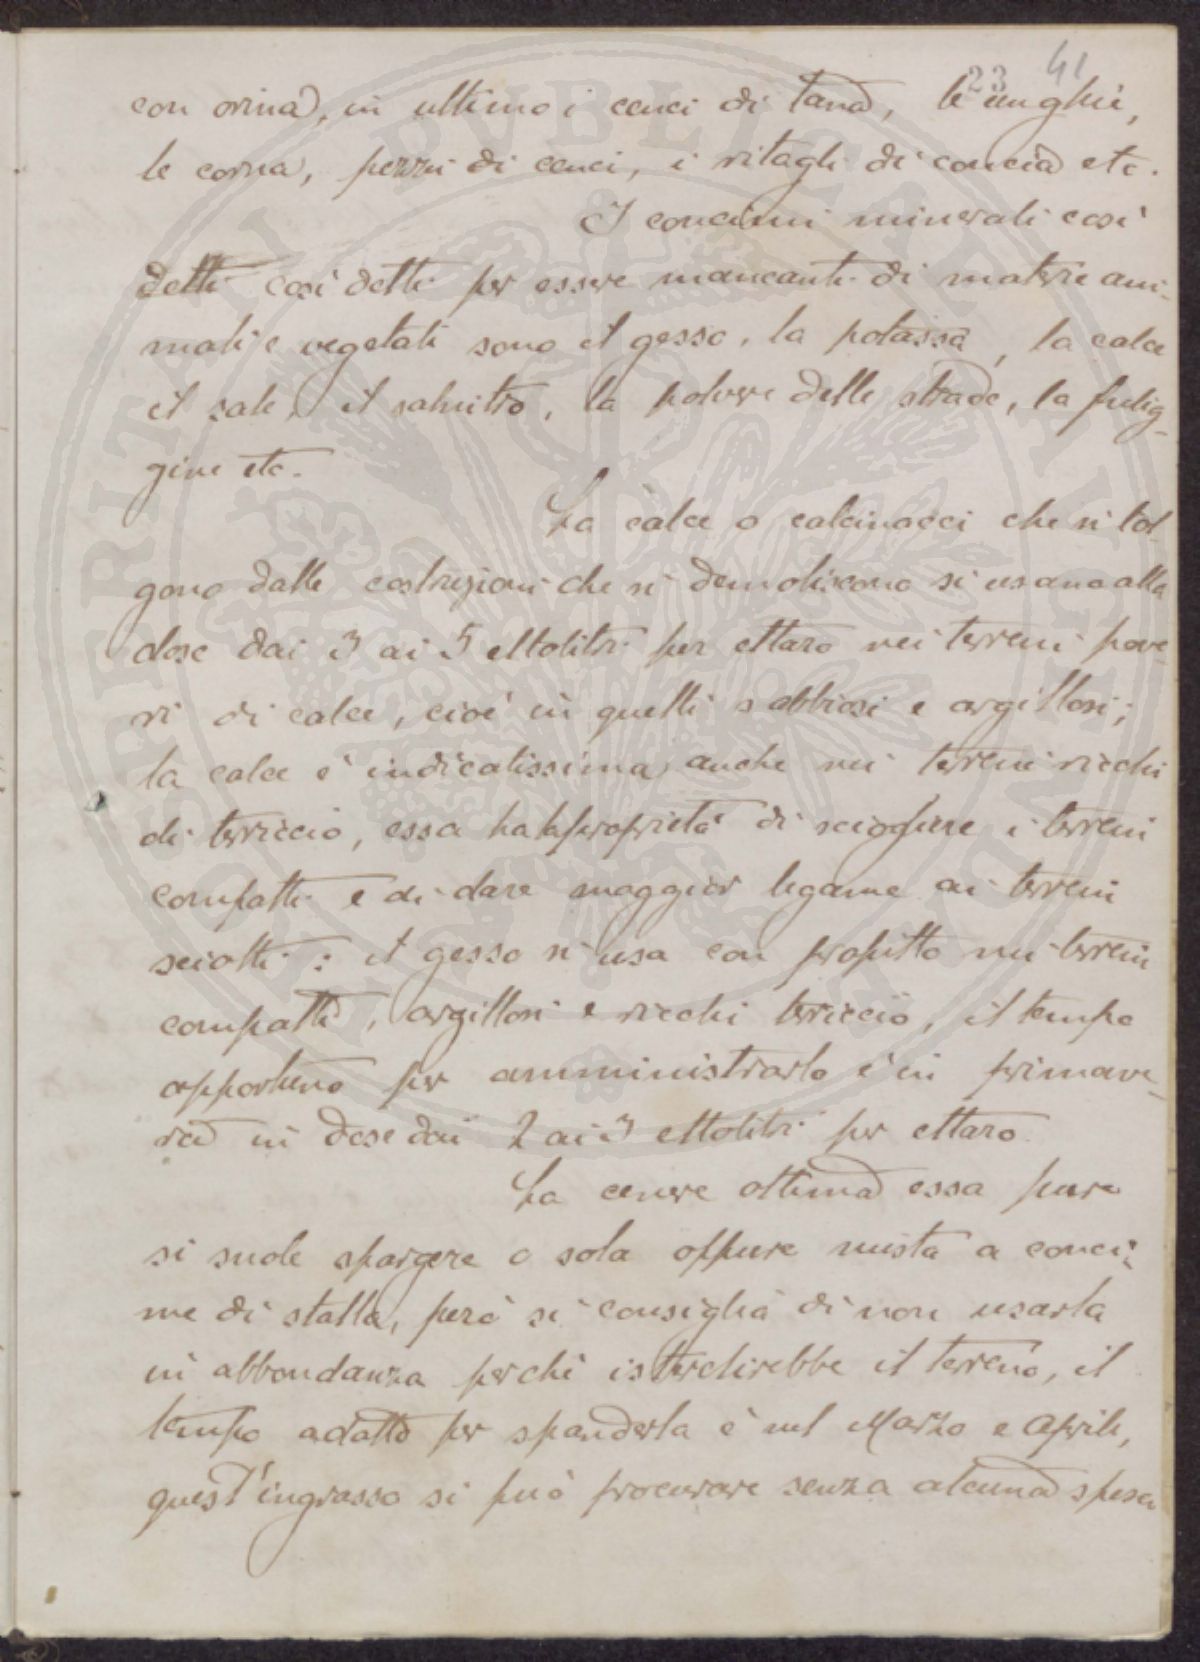 41
23
con orina, in ultimo i cenci di lana, le unghie,
le corna, pezzi di cenci, i ritagli di concia etc.
I concimi minerali così
detti così detti per essere mancanti di materie ani-
mali e vegetali sono il gesso, la potassa, la calce
il sale, il salnitro, la polvere delle strade, la fulig-
gine etc.
La calce o calcinacci che si tol
gono dalle costruzioni che si demoliscono si usano alla
dose dai 3 ai 5 ettolitri per ettaro nei terreni pove
ri di calce, cioè in quelli sabbiosi e argillosi;
la calce è indicatissima anche nei terreni ricchi
di terriccio, essa ha la proprietà di sciogliere i terreni
compatti e di dare maggior legame ai terreni
sciolti: il gesso si usa con profitto nei terreni
compatti, argillosi e ricchi terriccio, il tempo
opportuno per amministrarlo è in primave-
ra in dose dai 2 ai 3 ettolitri per ettaro
La cenere ottima essa pure
si suole spargere o sola oppure mista a conci-
me di stalla, però si consiglia di non usarla
in abbondanza perchè isterelirebbe il terreno, il
tempo adatto per spanderla è nel Marzo e Aprile,
quest'ingrasso si può procurare senza alcuna spesa
OSPERITATI PUBLICAE AUGENDAE